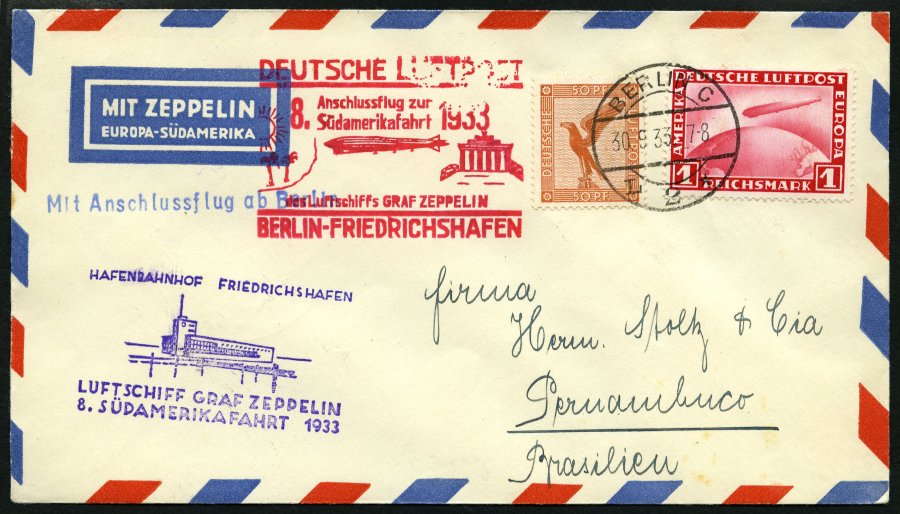 MIT ZEPPELIN
EUROPA-SÜDAMERIKA
Mit Anschlussflug ab Berlin
DEUTSCHE LUFTPOST
8. Anschlussflug zur
Südamerikafahrt 1933
des Luftschiffs GRAF ZEPPELIN
BERLIN-FRIEDRICHSHAFEN
50 PF 50 PF
DEUTSCHE
50 PF
BERLIN C
30.9.33. 7-8
2
DEUTSCHE LUFTPOST
AMERIKA
EUROPA
1 REICHSMARK 1
HAFENBAHNHOF FRIEDRICHSHAFEN
LUFTSCHIFF GRAF ZEPPELIN
8. SÜDAMERIKAFAHRT 1933
Firma
Herm. Stoltz & Cia
Pernambuco
Brasilien